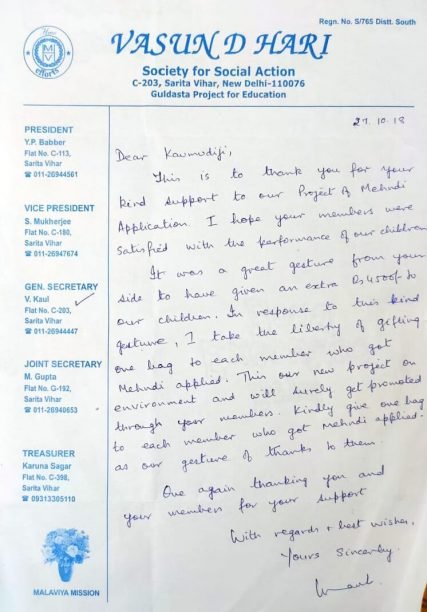 Regn. No. S/765 Distt. South
VASUN D HARI
Society for Social Action
C-203, Sarita Vihar, New Delhi-110076
Guldasta Project for Education
Your
M V
efforts
PRESIDENT
Y.P. Babber
Flat No. C-113,
Sarita Vihar
☎ 011-26944561
VICE PRESIDENT
S. Mukherjee
Flat No. C-180,
Sarita Vihar
☎ 011-26947674
GEN. SECRETARY
V. Kaul
Flat No. C-203,
Sarita Vihar
☎ 011-26944447
JOINT SECRETARY
M. Gupta
Flat No. G-192,
Sarita Vihar
☎ 011-26940653
TREASURER
Karuna Sagar
Flat No. C-398,
Sarita Vihar
☎ 09313305110
MALAVIYA MISSION
27.10.18
Dear Kaumudiji,
This is to thank you for your
kind support to our Project of Mehndi
Application. I hope your members were
satisfied with the performance of our children
It was a great gesture from your
side to have given an extra Rs 4500/- to
our children. In response to this kind
gesture, I take the liberty of gifting
one bag to each member who got
Mehndi applied. This our new project on
environment and will surely get promoted
through your members. Kindly give one bag
to each member who got Mehndi applied.
as our gesture of thanks to them.
One again thanking you and
your members for your support
With regards + best wishes,
Yours Sincerly.